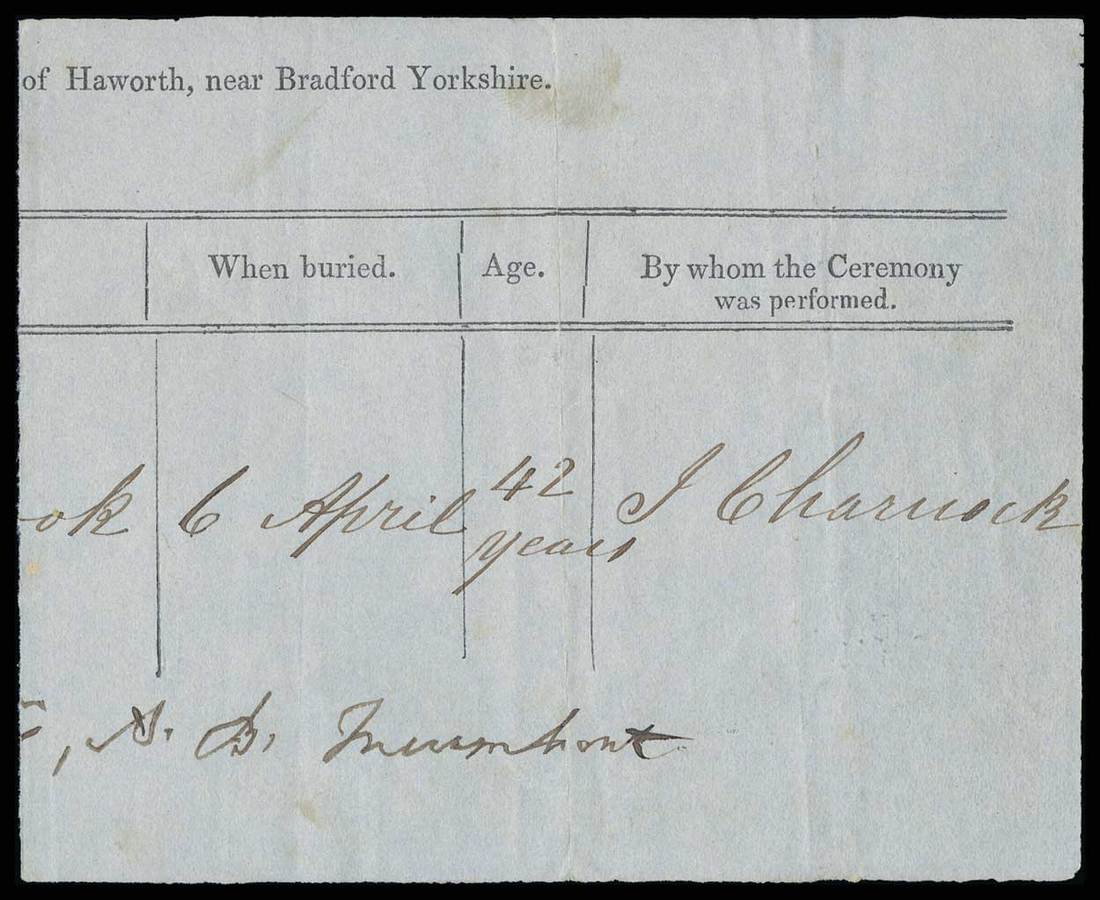 of Haworth, near Bradford Yorkshire.
When buried. Age. By whom the Ceremony
was performed.
ok 6 April 42 years J Charnock